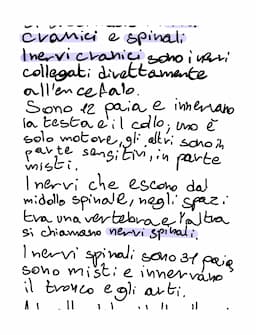 cranici e spinali
I nervi cranici sono i nervi
collegati direttamente
all'encefalo.
Sono 12 paia e innervano
la testa e il collo, uno è
solo motore, gli altri sono in
parte sensitivi, in parte
misti.
I nervi che escono dal
midollo spinale, negli spazi
tra una vertebra e l'altra
si chiamano nervi spinali.
I nervi spinali sono 31 paia,
sono misti e innervano
il tronco e gli arti.